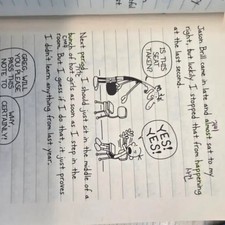 Jason Brill came in late and almost sat to my
right, but luckily I stopped that from happening
at the last second.
IS THIS
SEAT
TAKEN?
YES!
YES!
Next period, I should just sit in the middle of a
bunch of hot girls as soon as I step in the
room. But I guess if I do that, it just proves
I didn't learn anything from last year.
GREG, WILL
YOU PLEASE
PASS THIS
NOTE TO
WHY,
CERTAINLY!